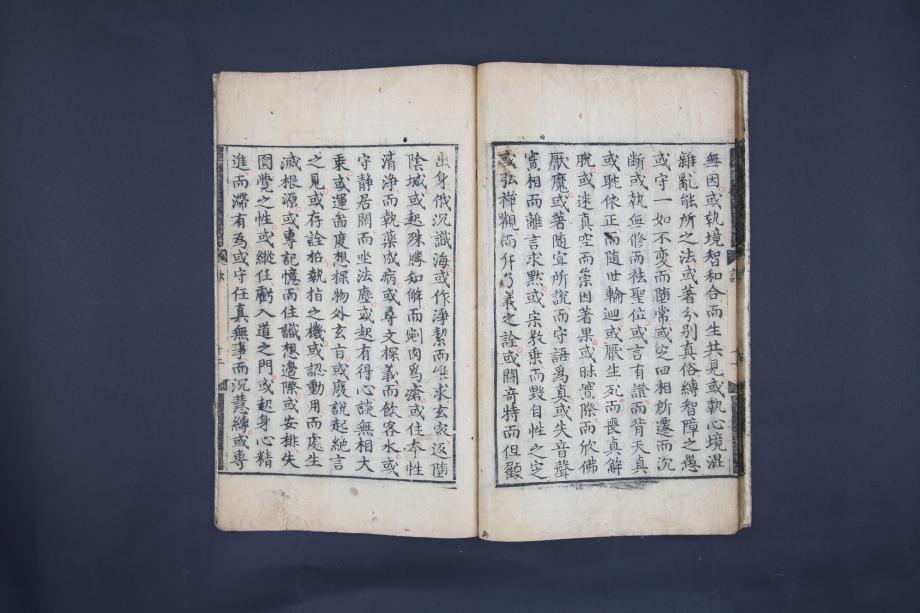 無因或執境智和合而生共見或執心境混
雜亂能所之法或著分別真俗縛智障之愚
或守一如不變而墮常或定四相所遷而沉
斷或執無修而袪聖位或言有證而背天真
或躭依正而隨世輪迴或厭生死而喪真解
脫或迷真空而崇因著果或昧實際而欣佛
厭魔或著隨宜所說而守語爲真或失音聲
實相而離言求默或宗教乗而毀自性之定
或弘禪觀而斥了義之詮或鬪竒特而但顧
出身俄沉識海或作淨絜而唯求玄密返墮
陰城或起殊勝知解而剜肉爲瘡或住本性
清淨而執藥成病或尋文探義而飲客水或
守静居閑而坐法塵或起有得心談無相大
乗或運啚度想探物外玄旨或廢說起絶言
之見或存詮招執指之機或認動用而處生
滅根源或專記憶而住識想邊際或安排失
圓覺之性或縱任虧入道之門或起身心精
進而滯有為或守任真無事而沉慧縛或專